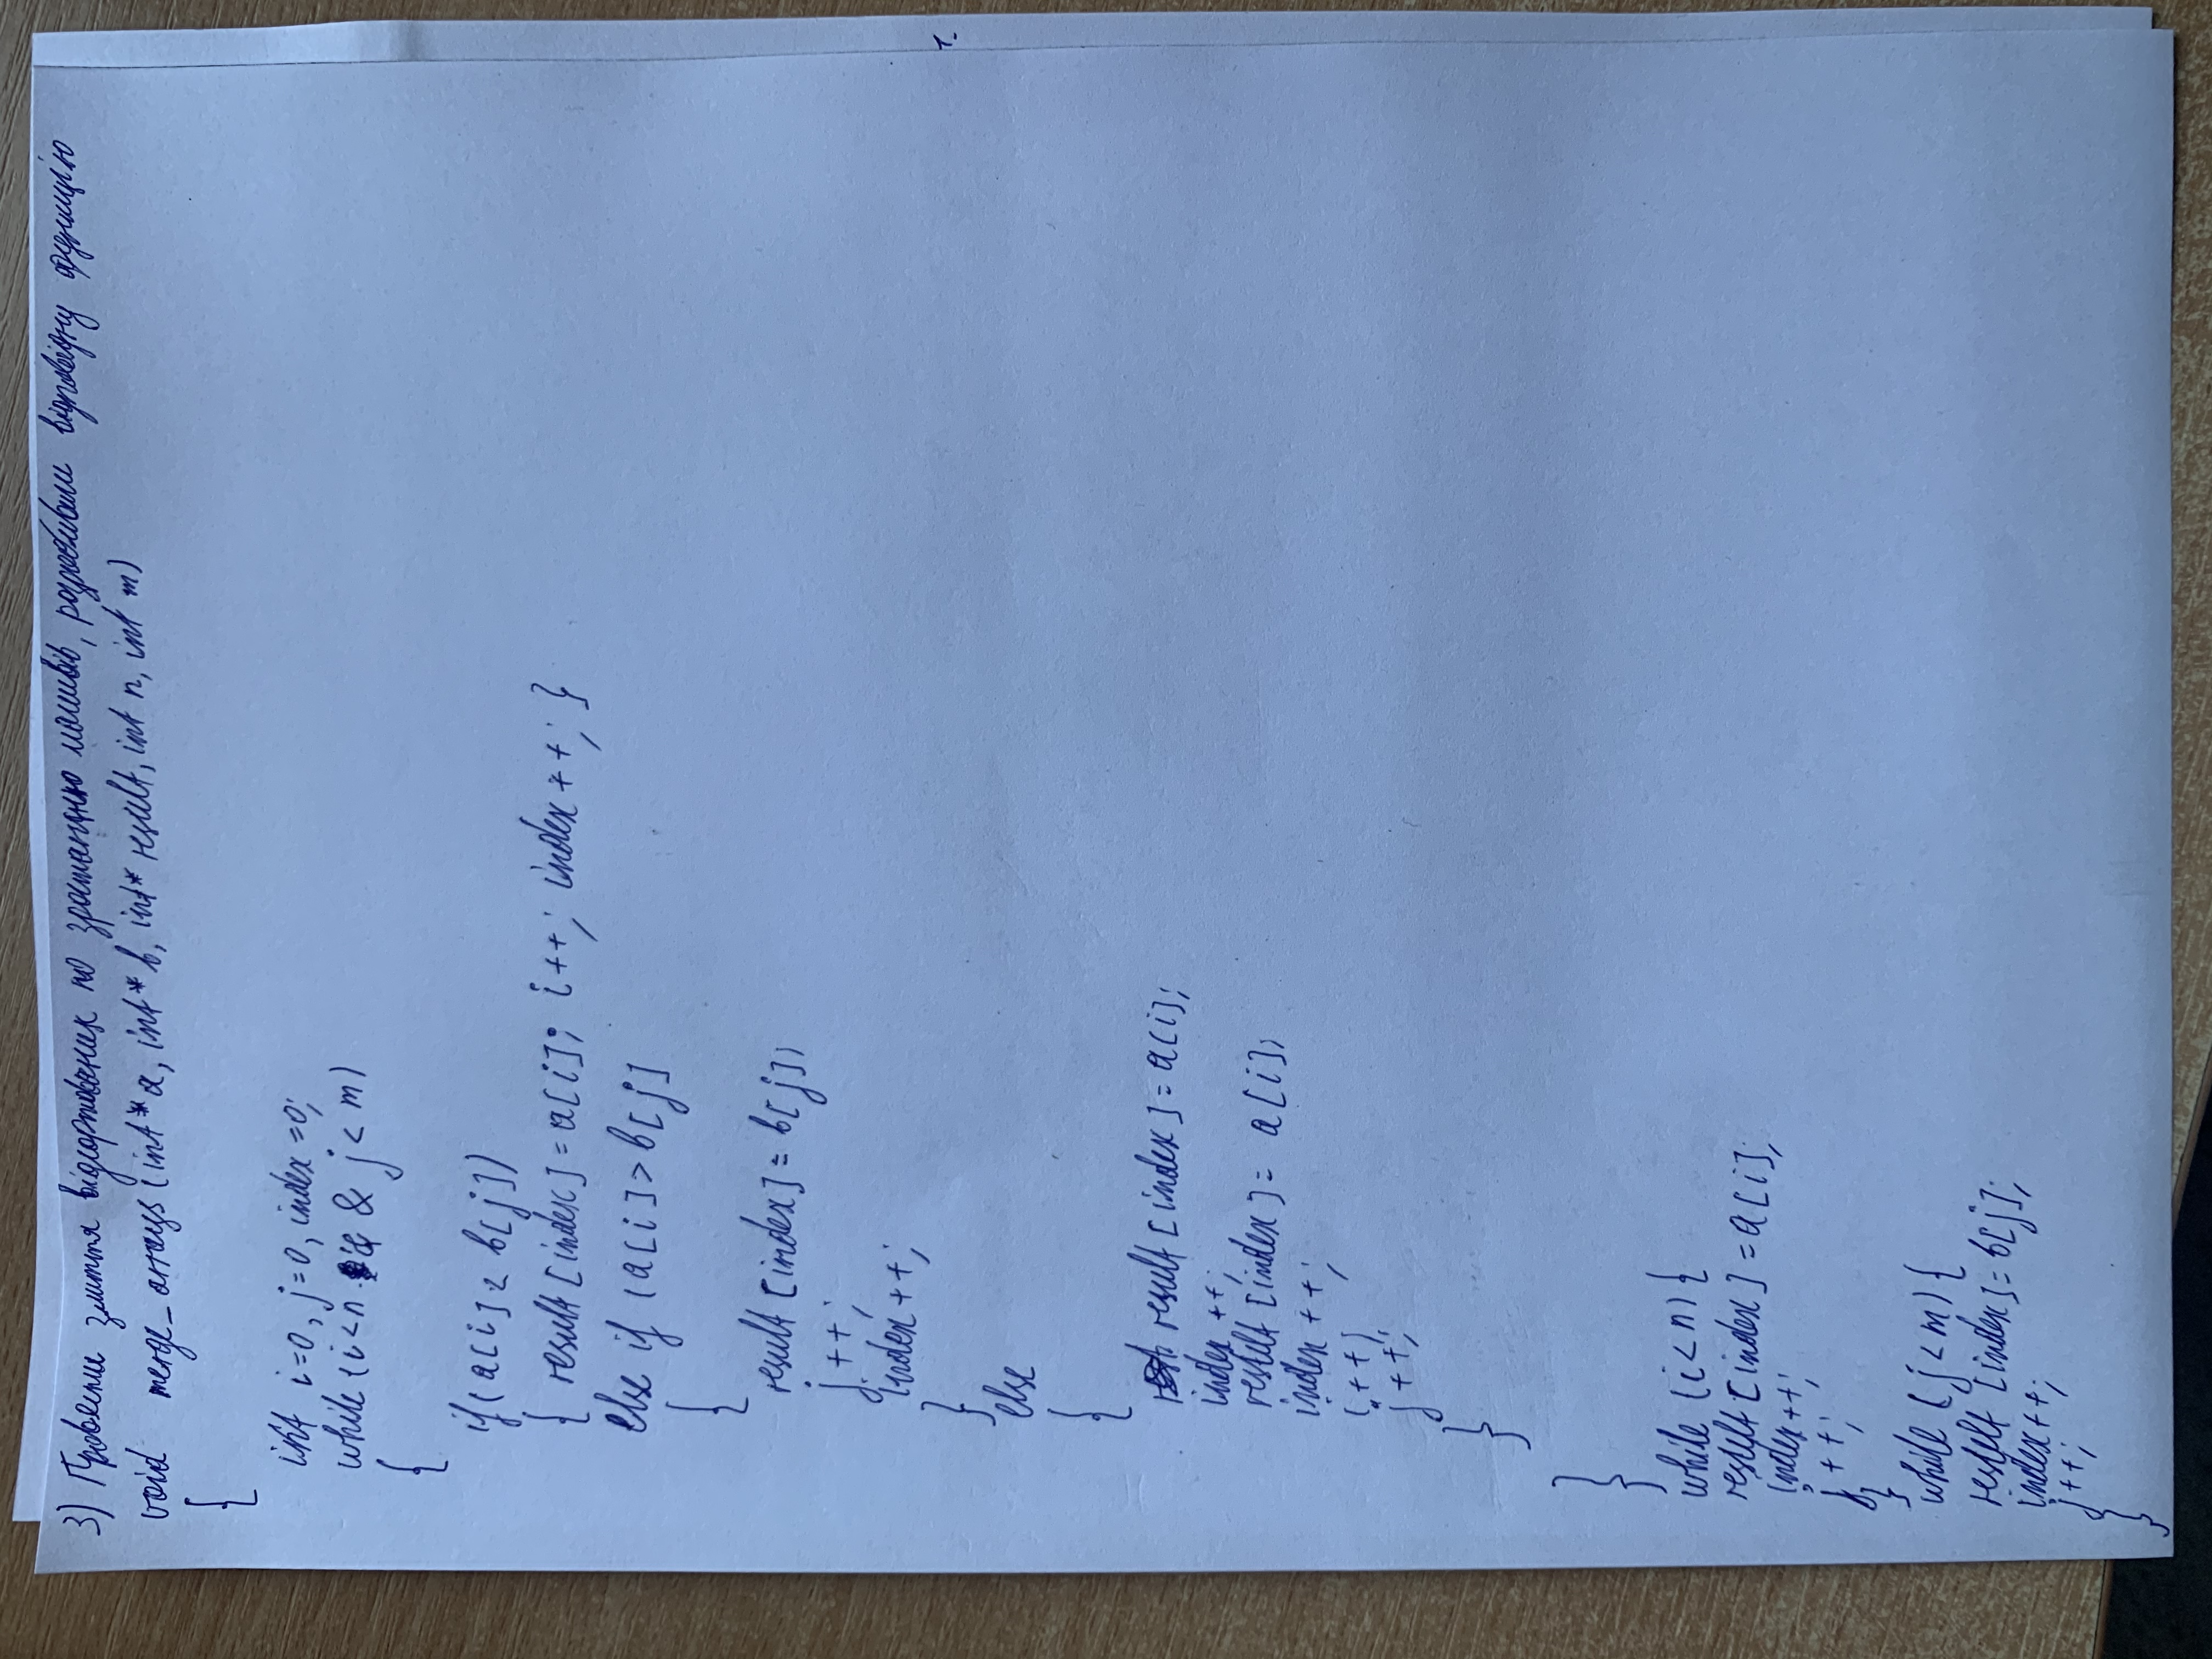 3) Провести злиття відсортованих по зростанню масивів, розробивши відповідну функцію
void merge_arrays (int* a, int* b, int* result, int n, int m)
{
int i=0, j=0, index =0;
while (i<n && j<m)
{
if(a[i] < b[j])
{ result [index] = a[i]; i++; index++; }
else if (a[i]>b[j]
{
result [index] = b[j];
j++;
index++;
}
else
{
result [index] = a[i];
index ++;
result [index] = a[i];
index ++;
i++;
j++;
}
}
while (i<n) {
result [index] = a[i];
index++;
j++;
}
while (j<m) {
result [index] = b[j];
index++;
j++;
}
}
1.